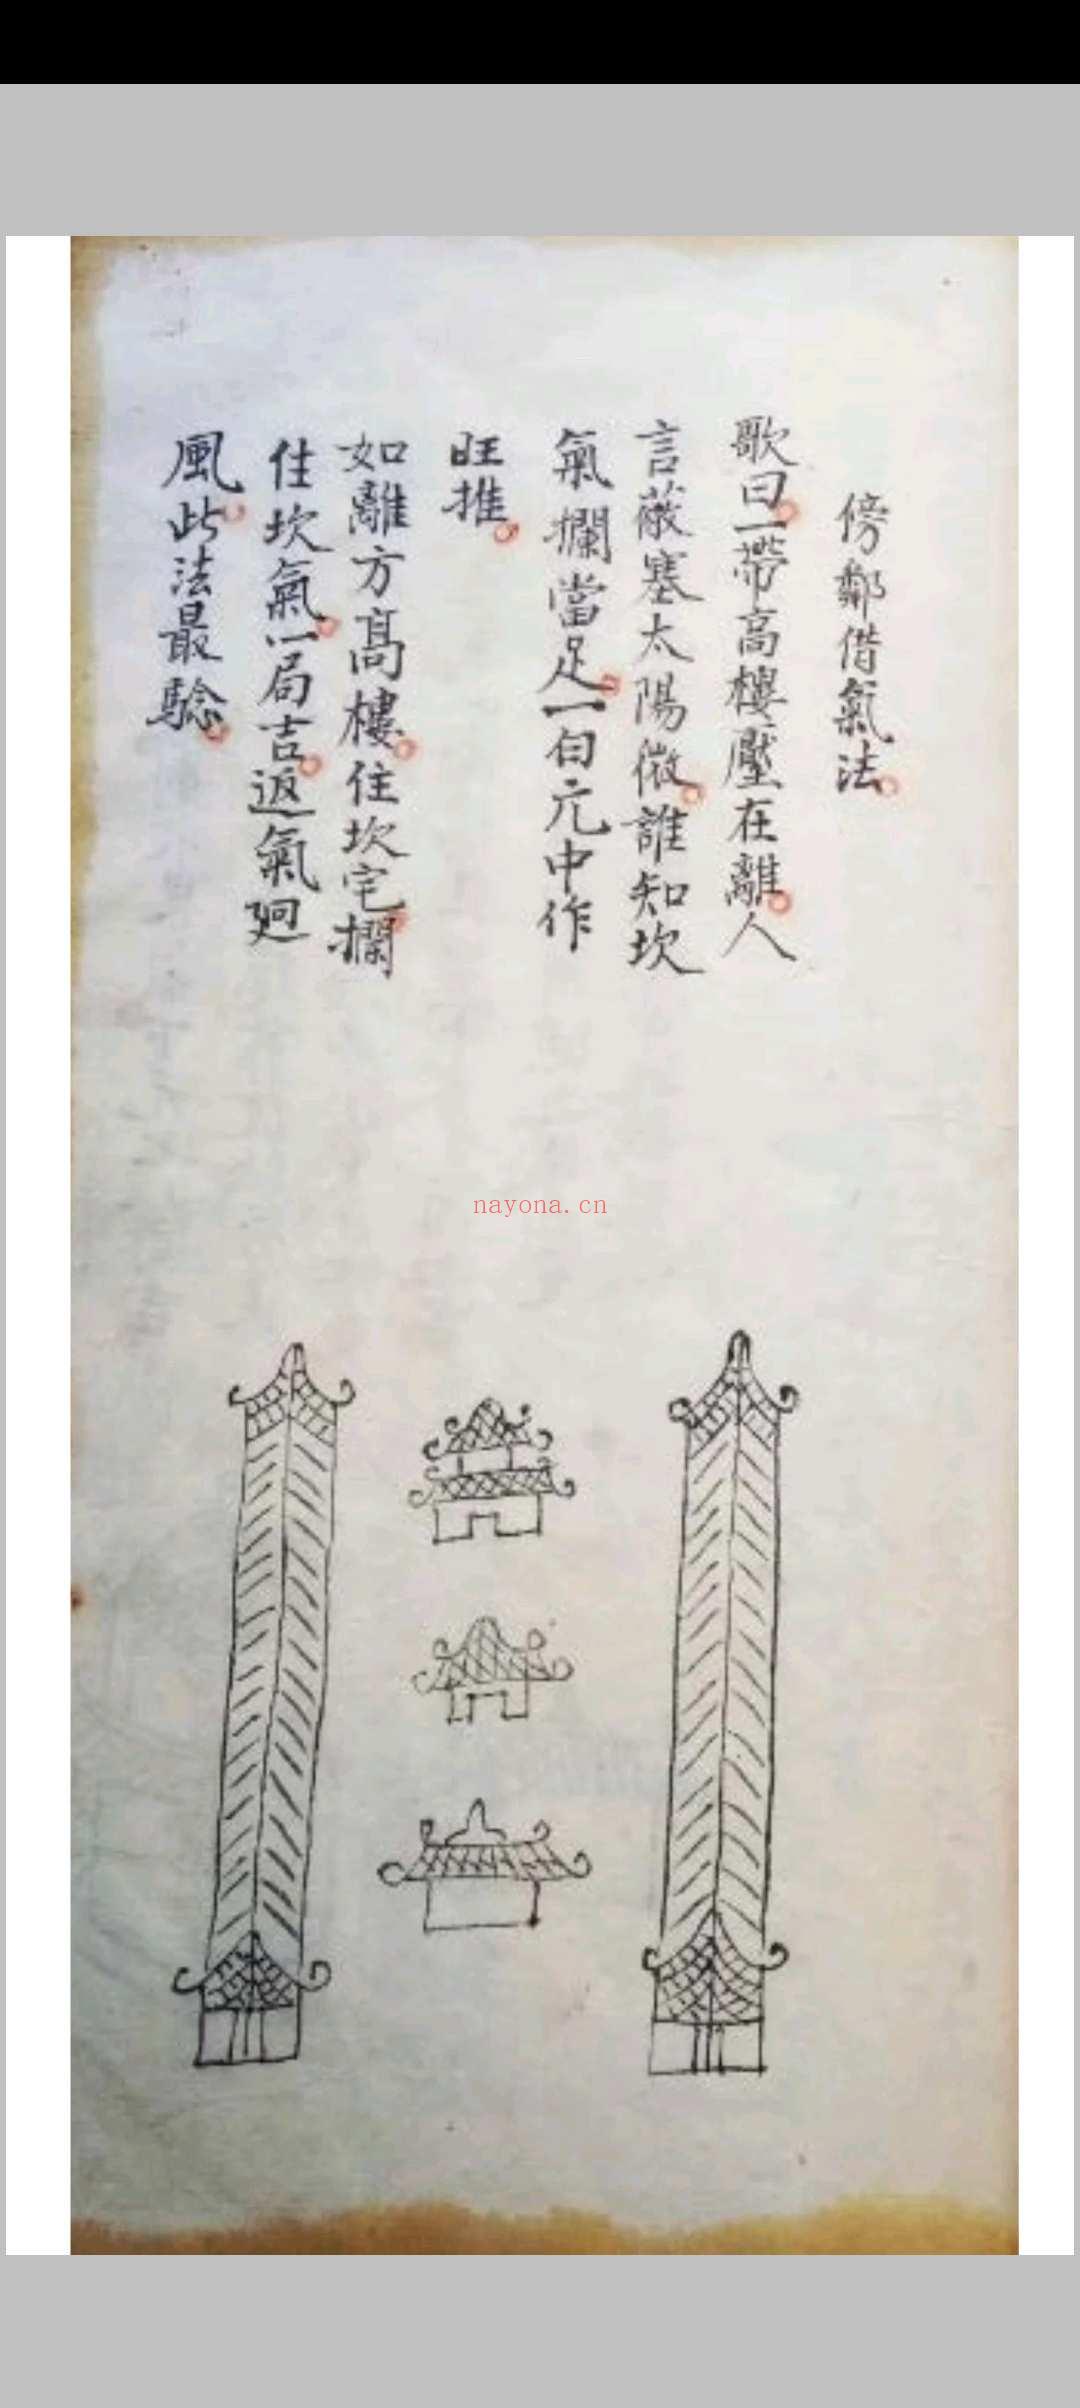 傍鄰借氣法
歌曰一帶高樓壓在離人
言蔽塞太陽微誰知坎
氣攔當足一白元中作
旺推
如離方髙樓住坎宅攔
住坎氣一局吉返氣廻
風此法最驗
nayona.cn